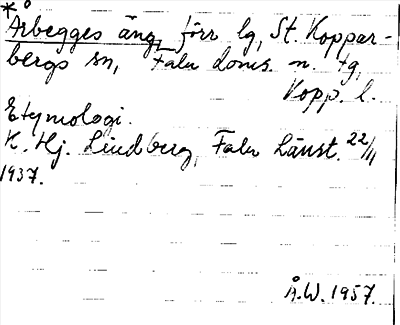 * Årbegges äng, förr lg, St. Koppar-
bergs sn, Falu doms. n. tg,
Kopp. l.
Etymologi.
K. Hj. Lindberg, Falu Länst. 22/11
1937.
Å.W. 1957.